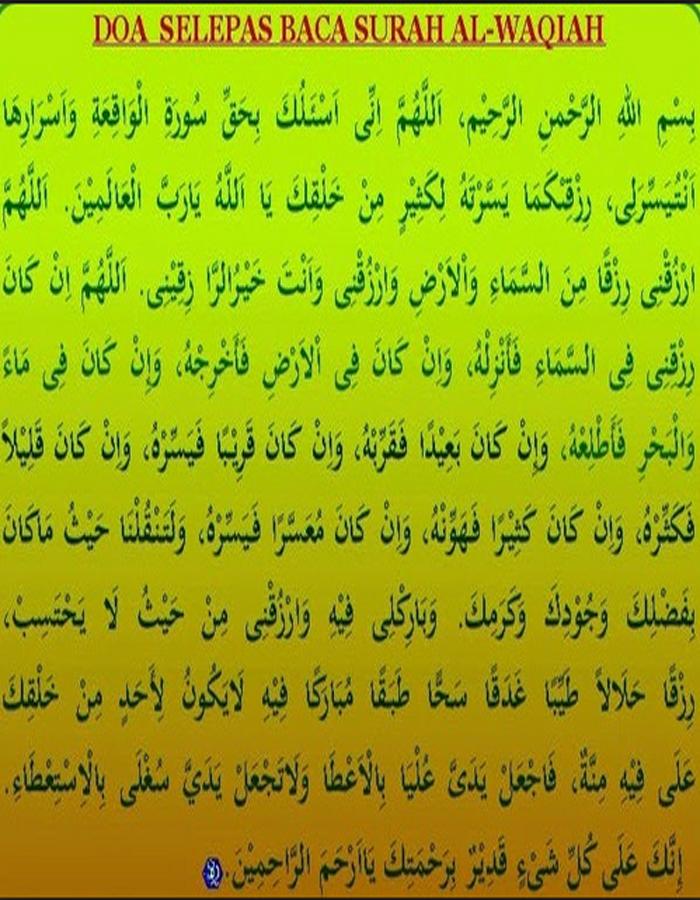 DOA SELEPAS BACA SURAH AL-WAQIAH
بِسْمِ اللهِ الرَّحْمنِ الرَّحِيْمِ، اَللَّهُمَّ اِنِّى اَسْئَلُكَ بِحَقِّ سُورَةِ الْوَاقِعَةِ وَاَسْرَارِهَا
اَنْتُيَسِّرَلِى، رِزْقِيْكَمَا يَسَّرْتَهُ لِكَثِيْرٍ مِنْ خَلْقِكَ يَا اَللَّهُ يَارَبَّ الْعَالَمِيْنَ. اَللَّهُمَّ
ارْزُقْنِى رِزْقًا مِنَ السَّمَاءِ وَاْلاَرْضِ وَارْزُقْنِى وَاَنْتَ خَيْرُالرَّا زِقِيْنِى. اَللَّهُمَّ اِنْ كَانَ
رِزْقِنِى فِى السَّمَاءِ فَأَنْزِلْهُ، وَاِنْ كَانَ فِى اْلاَرْضِ فَأَخْرِجْهُ، وَإِنْ كَانَ فِى مَاءً
وَالْبَحْرِ فَأَطْلِعْهُ، وَإِنْ كَانَ بَعِيْدًا فَقَرِّبْهُ، وَاِنْ كَانَ قَرِيْبًا فَيَسِّرْهُ، وَاِنْ كَانَ قَلِيْلاً
فَكَثِّرْهُ، وَاِنْ كَانَ كَثِيْرًا فَهَوِّنْهُ، وَاِنْ كَانَ مُعَسَّرًا فَيَسِّرْهُ، وَلَتَنْقُلْنَا حَيْثُ مَاكَانَ
بِفَضْلِكَ وَجُوْدِكَ وَكَرَمِكَ. وَبَارِكْلِى فِيْهِ وَارْزُقْنِى مِنْ حَيْثُ لَا يَحْتَسِبْ،
رِزْقًا حَلَالاً طَيِّبًا غَدَقًا سَحًّا طَبَقًا مُبَارَكًا فِيْهِ لَايَكُونُ لِأَحَدٍ مِنْ خَلْقِكَ
عَلَى فِيْهِ مِنَّةٌ، فَاجْعَلْ يَدَىَّ عُلْيَا بِالْاَعْطَا وَلَاتَجْعَلْ يَدَيَّ سُغْلَى بِالْاِسْتِعْطَاءِ.
إِنَّكَ عَلَى كُلِّ شَىْءٍ قَدِيْرٌ بِرَحْمَتِكَ يَااَرْحَمَ الرَّاحِمِيْنَ.